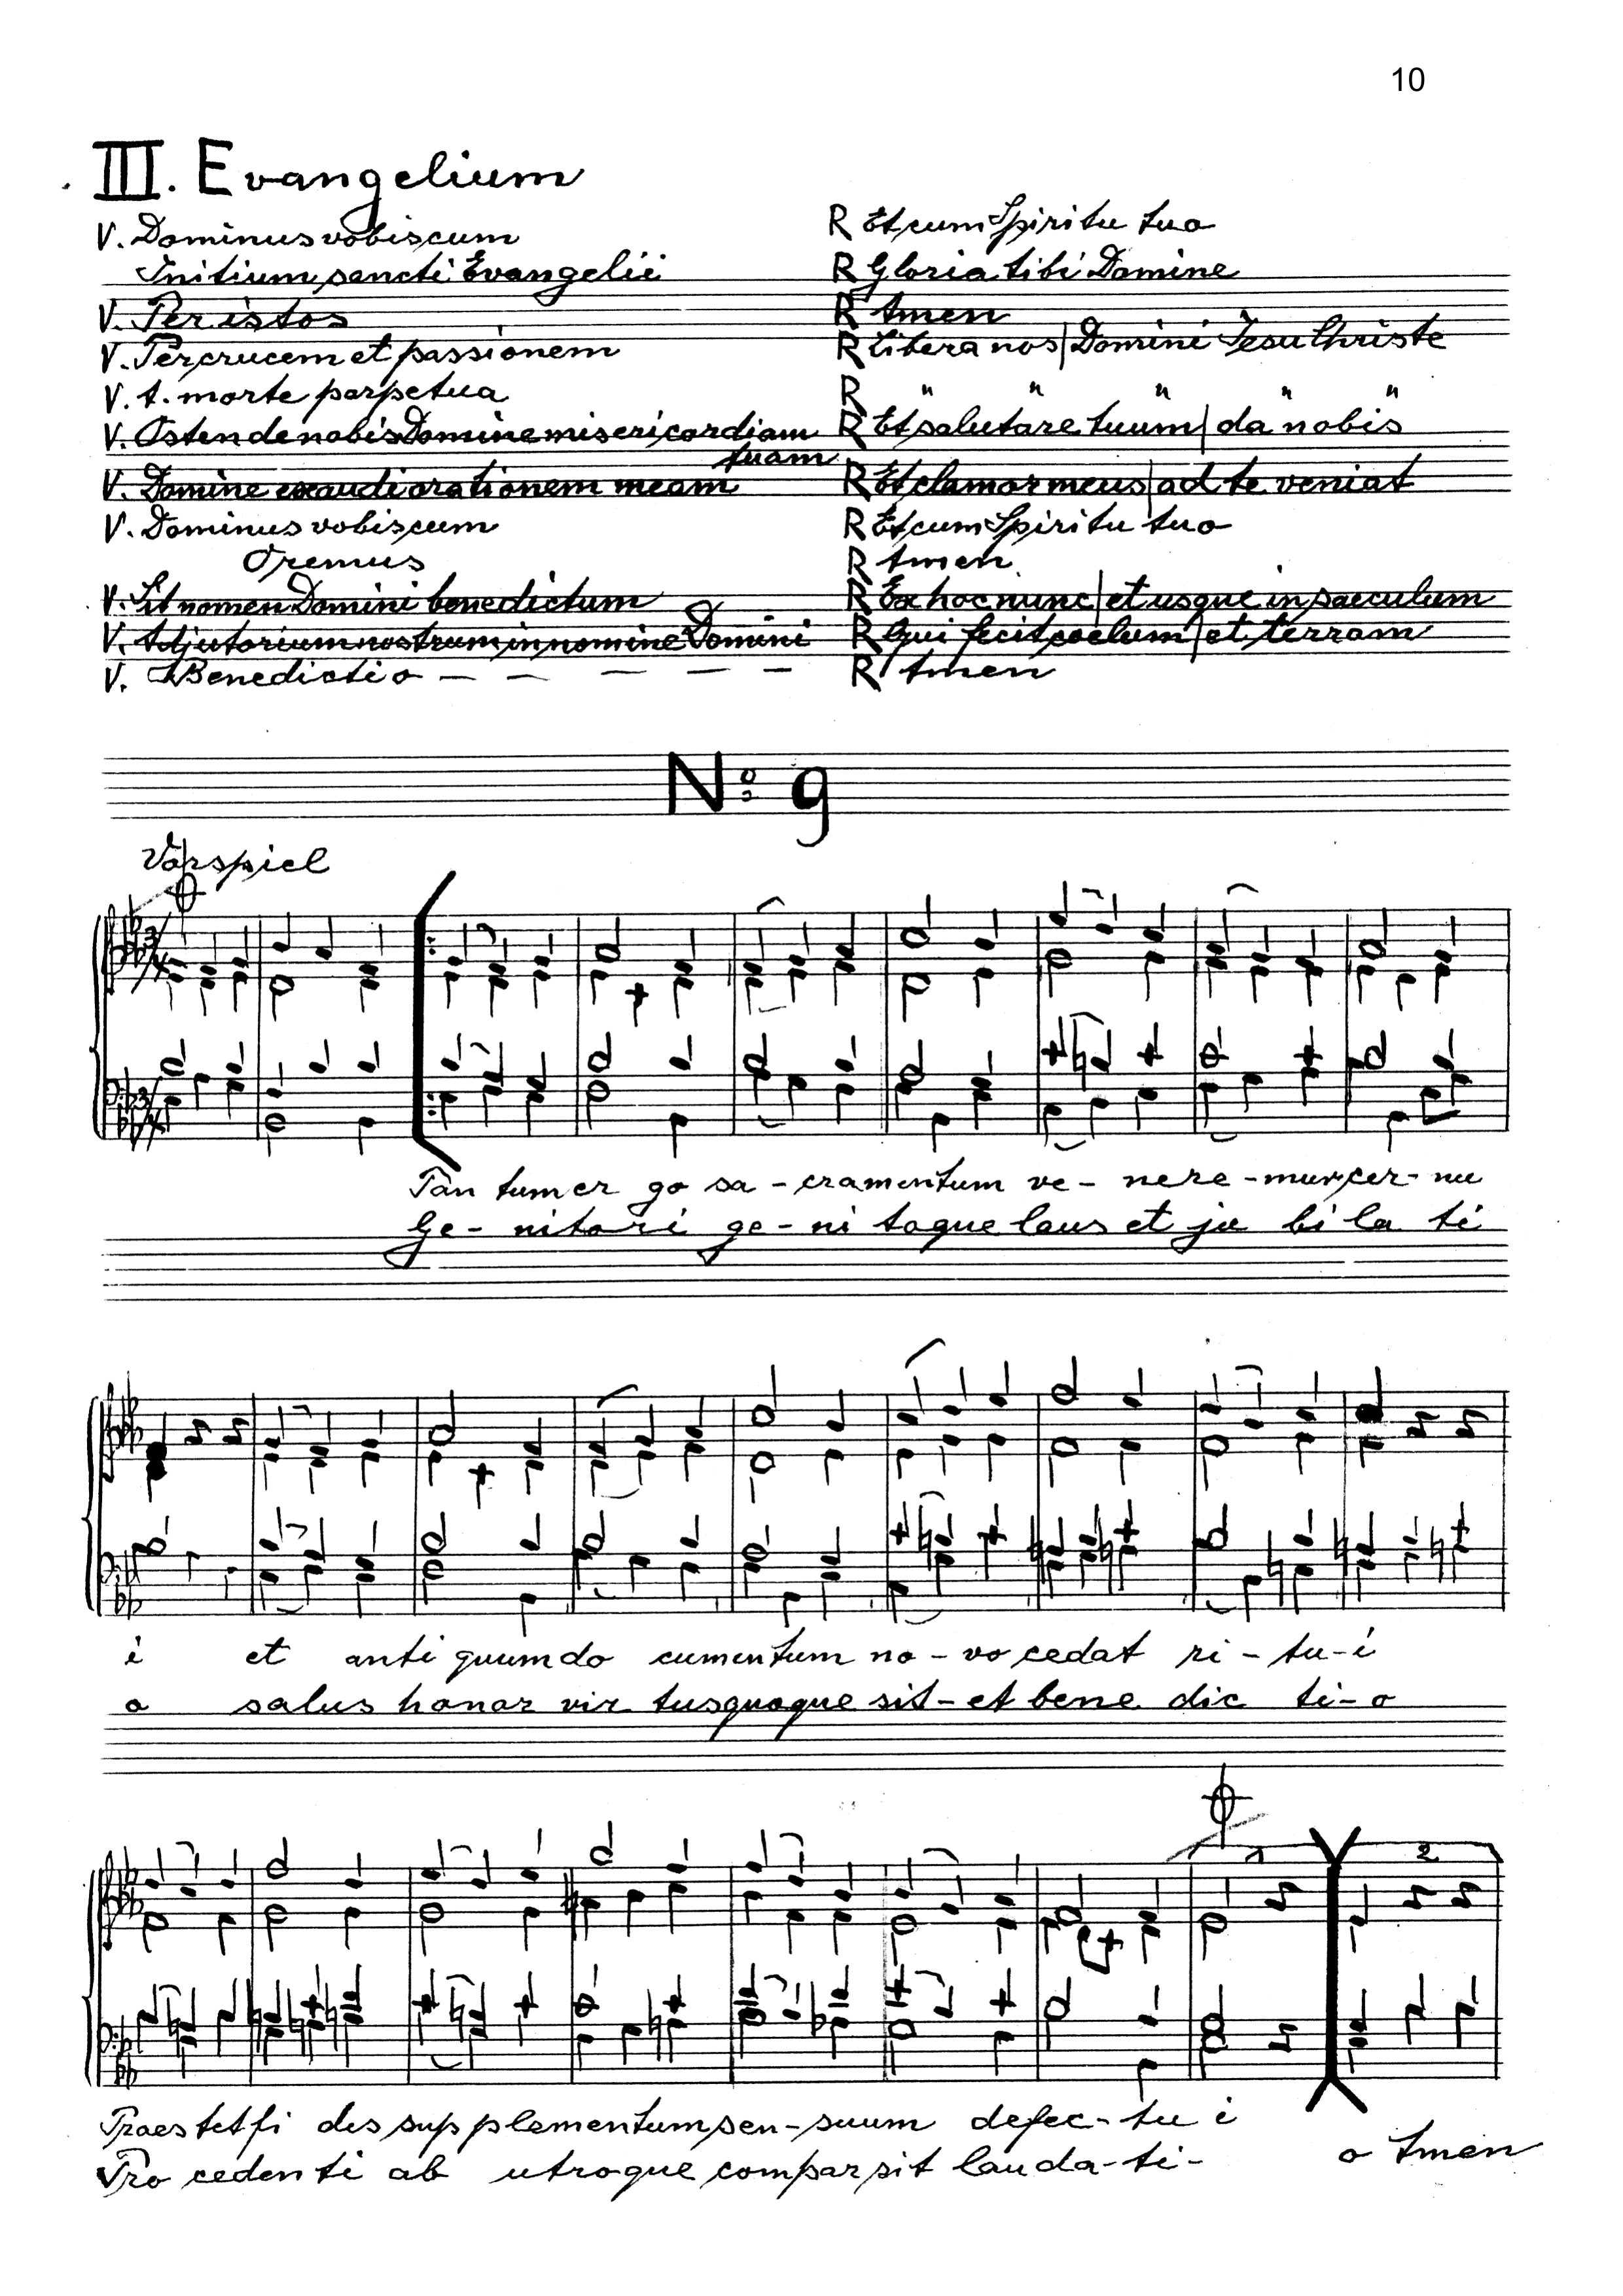 10
III. Evangelium
V. Dominus vobiscum R Et cum Spiritu tuo
Initium sancti Evangelii R Gloria tibi Domine
V. Per istos R Amen
V. Per crucem et passionem R Libera nos | Domini Jesu Christe
V. A. morte perpetua R " " " " "
V. Ostende nobis Domine misericordiam tuam R Et salutare tuum | da nobis
V. Domine exaudi orationem meam R Et clamor meus | ad te veniat
V. Dominus vobiscum R Et cum Spiritu tuo
Oremus R Amen
V. Sit nomen Domini benedictum R Ex hoc nunc | et usque in saeculum
V. Adjutorium nostrum in nomine Domini R Qui fecit coelum | et terram
V. Benedictio — — — — — R Amen
No: 9
Vorspiel
Tan tum er go sa - cramentum ve - nere - mur cer - nu
Ge - nitori ge - ni toque laus et ju bi la ti
i et anti quum do cumentum no - vo cedat ri - tu - i
o salus honor vir tus quoque sit - et bene dic ti - o
2
Praestet fi des supplementum sen - suum defec - tu i
Pro cedenti ab utroque compar sit lauda - ti - o Amen